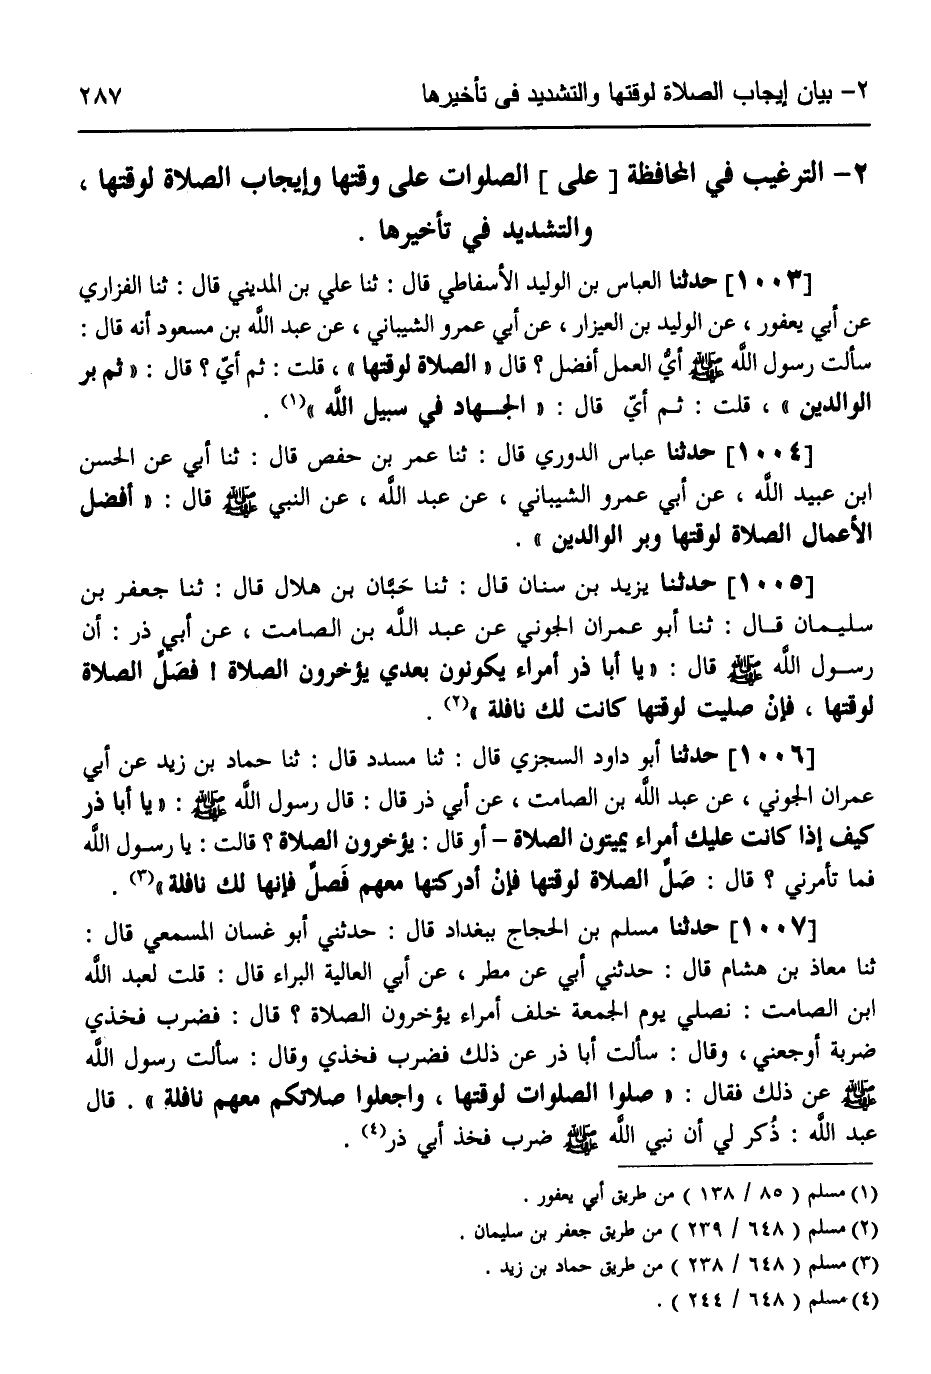 ٢- بيان إيجاب الصلاة لوقتها والتشديد فى تأخيرها ٢٨٧
٢- الترغيب في المحافظة [ على ] الصلوات على وقتها وإيجاب الصلاة لوقتها ،
والتشديد في تأخيرها .
[١٠٠٣] حدثنا العباس بن الوليد الأسفاطي قال : ثنا علي بن المديني قال : ثنا الفزاري
عن أبي يعفور ، عن الوليد بن العيزار ، عن أبي عمرو الشيباني ، عن عبد اللَّه بن مسعود أنه قال :
سألت رسول اللَّه ﷺ أيُّ العمل أفضل ؟ قال « الصلاة لوقتها » ، قلت : ثم أيّ ؟ قال : « ثم بر
الوالدين » ، قلت : ثم أيّ قال : « الجهاد في سبيل اللَّه »(١) .
[١٠٠٤] حدثنا عباس الدوري قال : ثنا عمر بن حفص قال : ثنا أبي عن الحسن
ابن عبيد اللَّه ، عن أبي عمرو الشيباني ، عن عبد اللَّه ، عن النبي ﷺ قال : « أفضل
الأعمال الصلاة لوقتها وبر الوالدين » .
[١٠٠٥] حدثنا يزيد بن سنان قال : ثنا حَبَّان بن هلال قال : ثنا جعفر بن
سليمان قال : ثنا أبو عمران الجوني عن عبد اللَّه بن الصامت ، عن أبي ذر : أن
رسول اللَّه ﷺ قال : « يا أبا ذر أمراء يكونون بعدي يؤخرون الصلاة ! فصَلِّ الصلاة
لوقتها ، فإنْ صليت لوقتها كانت لك نافلة »(٢) .
[١٠٠٦] حدثنا أبو داود السجزي قال : ثنا مسدد قال : ثنا حماد بن زيد عن أبي
عمران الجوني ، عن عبد اللَّه بن الصامت ، عن أبي ذر قال : قال رسول اللَّه ﷺ : « يا أبا ذر
كيف إذا كانت عليك أمراء يميتون الصلاة – أو قال : يؤخرون الصلاة ؟ قالت : يا رسول اللَّه
فما تأمرني ؟ قال : صَلِّ الصلاة لوقتها فإنْ أدركتها معهم فَصلِّ فإنها لك نافلة »(٣) .
[١٠٠٧] حدثنا مسلم بن الحجاج ببغداد قال : حدثني أبو غسان المسمعي قال :
ثنا معاذ بن هشام قال : حدثني أبي عن مطر ، عن أبي العالية البراء قال : قلت لعبد اللَّه
ابن الصامت : نصلي يوم الجمعة خلف أمراء يؤخرون الصلاة ؟ قال : فضرب فخذي
ضربة أوجعني ، وقال : سألت أبا ذر عن ذلك فضرب فخذي وقال : سألت رسول اللَّه
ﷺ عن ذلك فقال : « صلوا الصلوات لوقتها ، واجعلوا صلاتكم معهم نافلة » . قال
عبد اللَّه : ذُكر لي أن نبي اللَّه ﷺ ضرب فخذ أبي ذر(٤) .
(١) مسلم ( ٨٥ / ١٣٨ ) من طريق أبي يعفور .
(٢) مسلم ( ٦٤٨ / ٢٣٩ ) من طريق جعفر بن سليمان .
(٣) مسلم ( ٦٤٨ / ٢٣٨ ) من طريق حماد بن زيد .
(٤) مسلم ( ٦٤٨ / ٢٤٤ ) .